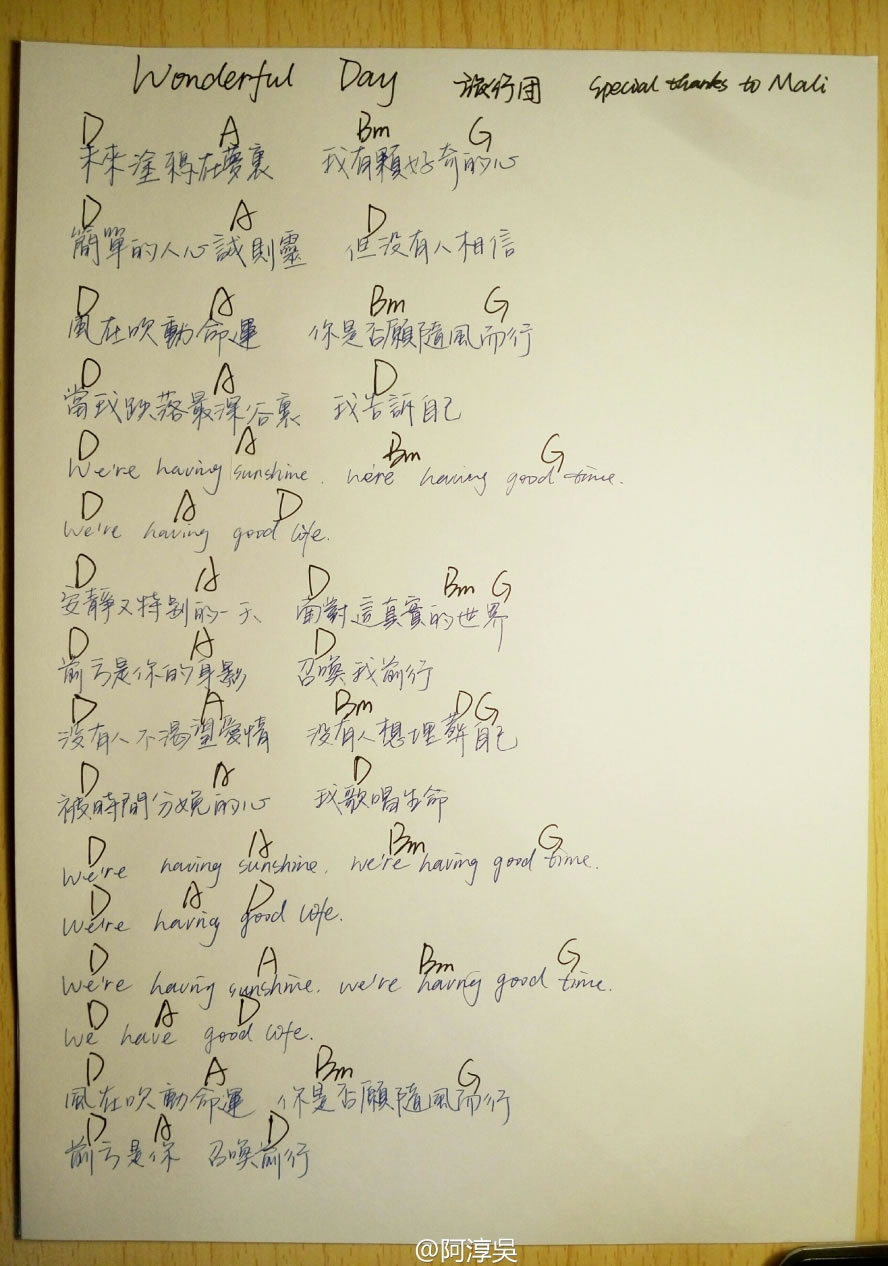 Wonderful Day 旅行团 Special thanks to Mali
D A Bm G
未來塗鴉在夢裏 我有顆好奇的心
D A D
簡單的人心誠則靈 但没有人相信
D A Bm G
風在吹動命運 你是否願隨風而行
D A D
當我跌落最深谷裏 我告訴自己
D A Bm G
We're having sunshine. we're having good time.
D A D
We're having good life.
D A D Bm G
安靜又特别的一天 面對這真實的世界
D A D
前方是你的身影 召喚我前行
D A Bm D G
没有人不渴望愛情 没有人想埋葬自己
D A D
被時間分娩的心 我歌唱生命
D A Bm G
We're having sunshine. we're having good time.
D A D
We're having good life.
D A Bm G
We're having sunshine. we're having good time.
D A D
We have good life.
D A Bm G
風在吹動命運 你是否願隨風而行
D A D
前方是你 召喚前行
@阿淳吳